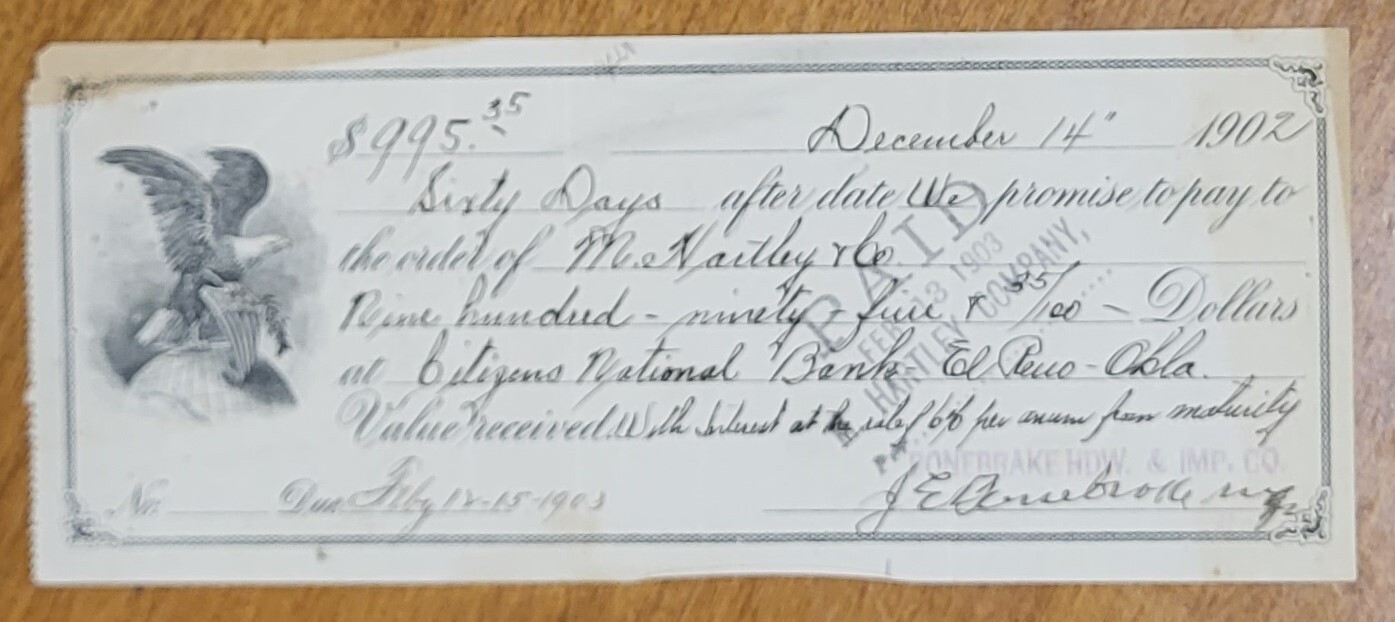 $995.35 December 14" 1902
Sixty Days after date We promise to pay to
the order of M. Hartley & Co
Nine hundred - ninety - five & 35/100 - Dollars
at Citizens National Bank - El Reno - Okla.
Value received. With Interest at the rate of 6% per anum from maturity
PAID
FEB 13 1903
HARTLEY COMPANY,
BONEBRAKE HDW. & IMP. CO.
No. Due Feby 12-15-1903 J E Bonebrake mgr